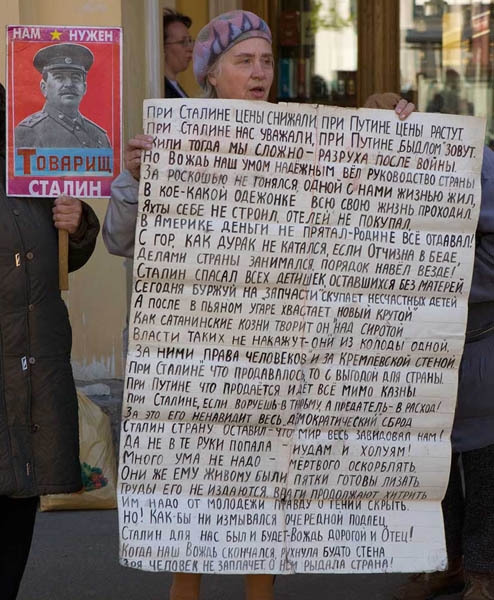 НАМ НУЖЕН
ТОВАРИЩ
СТАЛИН
ПРИ СТАЛИНЕ ЦЕНЫ СНИЖАЛИ, ПРИ ПУТИНЕ ЦЕНЫ РАСТУТ
ПРИ СТАЛИНЕ НАС УВАЖАЛИ, ПРИ ПУТИНЕ „БЫДЛОМ" ЗОВУТ.
ЖИЛИ ТОГДА МЫ СЛОЖНО - РАЗРУХА ПОСЛЕ ВОЙНЫ.
НО ВОЖДЬ НАШ УМОМ НАДЁЖНЫМ ВЁЛ РУКОВОДСТВО СТРАНЫ
ЗА РОСКОШЬЮ НЕ ГОНЯЛСЯ, ОДНОЙ С НАМИ ЖИЗНЬЮ ЖИЛ,
В КОЕ-КАКОЙ ОДЕЖОНКЕ ВСЮ СВОЮ ЖИЗНЬ ПРОХОДИЛ.
ЯХТЫ СЕБЕ НЕ СТРОИЛ, ОТЕЛЕЙ НЕ ПОКУПАЛ,
В АМЕРИКЕ ДЕНЬГИ НЕ ПРЯТАЛ - РОДИНЕ ВСЁ ОТДАВАЛ!
С ГОР, КАК ДУРАК НЕ КАТАЛСЯ, ЕСЛИ ОТЧИЗНА В БЕДЕ,
ДЕЛАМИ СТРАНЫ ЗАНИМАЛСЯ, ПОРЯДОК НАВЁЛ ВЕЗДЕ!
СТАЛИН СПАСАЛ ВСЕХ ДЕТИШЕК, ОСТАВШИХСЯ БЕЗ МАТЕРЕЙ.
СЕГОДНЯ БУРЖУЙ НА „ЗАПЧАСТИ" СКУПАЕТ НЕСЧАСТНЫХ ДЕТЕЙ
А ПОСЛЕ В ПЬЯНОМ УГАРЕ ХВАСТАЕТ „НОВЫЙ КРУТОЙ"
КАК САТАНИНСКИЕ КОЗНИ ТВОРИТ ОН НАД СИРОТОЙ
ВЛАСТИ ТАКИХ НЕ НАКАЖУТ - ОНИ ИЗ КОЛОДЫ ОДНОЙ.
ЗА НИМИ „ПРАВА ЧЕЛОВЕКОВ" И ЗА КРЕМЛЁВСКОЙ СТЕНОЙ.
ПРИ СТАЛИНЕ ЧТО ПРОДАВАЛОСЬ, ТО С ВЫГОДОЙ ДЛЯ СТРАНЫ.
ПРИ ПУТИНЕ ЧТО ПРОДАЁТСЯ ИДЁТ ВСЁ МИМО КАЗНЫ.
ПРИ СТАЛИНЕ, ЕСЛИ ВОРУЕШЬ В ТЮРЬМУ, А ПРЕДАТЕЛЬ - В РАСХОД!
ЗА ЭТО ЕГО НЕНАВИДИТ ВЕСЬ ДЕМОКРАТИЧЕСКИЙ СБРОД
СТАЛИН СТРАНУ ОСТАВИЛ - ЧТО МИР ВЕСЬ ЗАВИДОВАЛ НАМ!
ДА НЕ В ТЕ РУКИ ПОПАЛА - ИУДАМ И ХОЛУЯМ!
МНОГО УМА НЕ НАДО - МЕРТВОГО ОСКОРБЛЯТЬ.
ОНИ ЖЕ ЕМУ ЖИВОМУ БЫЛИ ПЯТКИ ГОТОВЫ ЛИЗАТЬ
ТРУДЫ ЕГО НЕ ИЗДАЮТСЯ, ВРАГИ ПРОДОЛЖАЮТ ХИТРИТЬ
ИМ НАДО ОТ МОЛОДЁЖИ ПРАВДУ О ГЕНИИ СКРЫТЬ.
НО! КАК-БЫ НИ ИЗМЫВАЛСЯ ОЧЕРЕДНОЙ ПОДЛЕЦ
СТАЛИН ДЛЯ НАС БЫЛ И БУДЕТ - ВОЖДЬ ДОРОГОЙ И ОТЕЦ!
КОГДА НАШ ВОЖДЬ СКОНЧАЛСЯ, РУХНУЛА БУДТО СТЕНА
ЗРЯ ЧЕЛОВЕК НЕ ЗАПЛАЧЕТ О НЁМ РЫДАЛА СТРАНА!